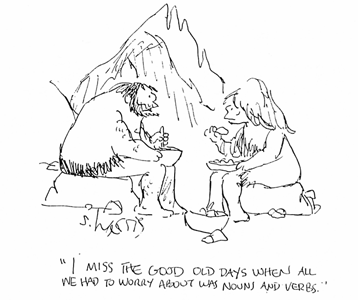 S. Harris
"I MISS THE GOOD OLD DAYS WHEN ALL
WE HAD TO WORRY ABOUT WAS NOUNS AND VERBS."